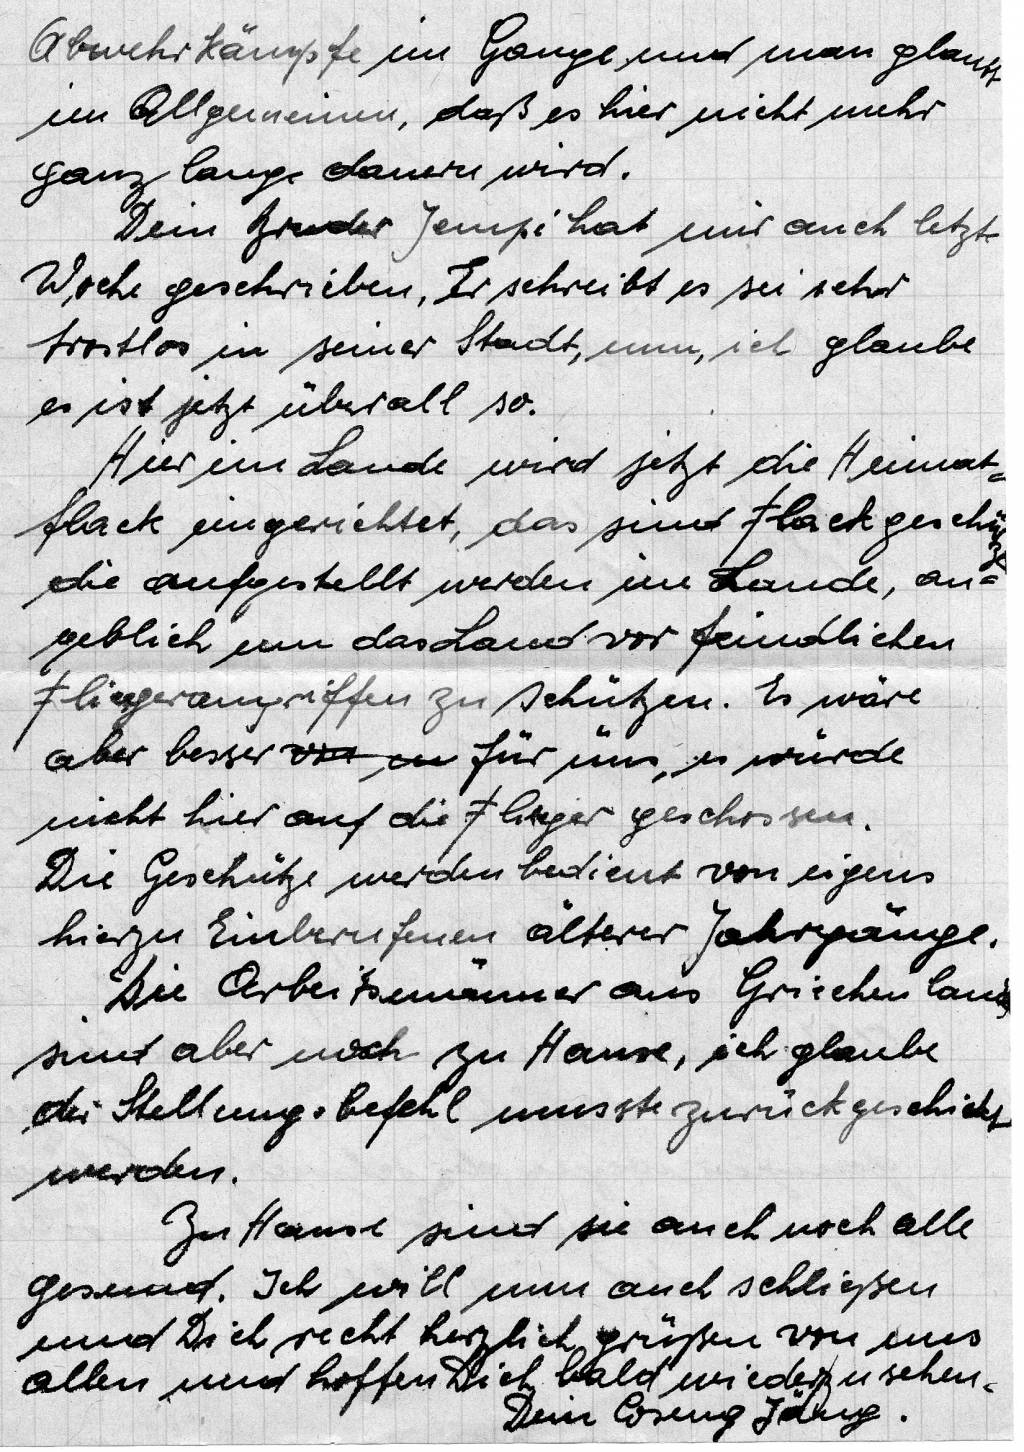 Abwehrkämpfe im Gange und man glaubt
im Allgemeinen, daß es hier nicht mehr
ganz lange dauern wird.
Dein Bruder Jempi hat mir auch letzt
Woche geschrieben, Er schreibt es sei sehr
trostlos in seiner Stadt, nun, ich glaube
es ist jetzt überall so.
Hier im Lande wird jetzt die Heimat=
flack eingerichtet, das sind Flackgeschütze
die aufgestellt werden im Lande, an=
geblich um das Land vor feindlichen
Fliegerangriffen zu schützen. Es wäre
aber besser für üns, es würde
nicht hier auf die Flieger geschossen.
Die Geschütze werden bedient von eigens
hierzu Einberufenen älterer Jahrgänge.
Die Arbeitsmänner aus Griechenland
sind aber noch zu Hause, ich glaube
der Stellungsbefehl musste zurückgeschickt
werden.
Zu Hause sind sie auch noch alle
gesund. Ich will nun auch schließen
und Dich recht herzlich grüßen von uns
allen und hoffen Dich bald wiederzusehen.
Dein Coseng Jäng.